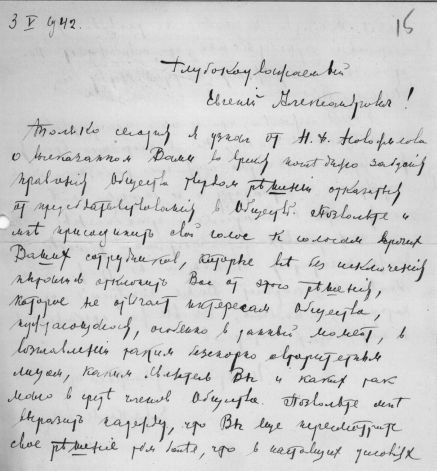 3 V 1942.
15
Глубокоуважаемый
Евгений Александрович!
Только сегодня я узнал от Н. Н.
о высказанном Вами во время последнего заседания
правления Общества твердом рѣшении отказаться
от председательствования в Обществѣ. Позвольте и
мнѣ присоединить свой голос к голосам прочих
Ваших сотрудников, которые всѣ без исключения
пытались отклонить Вас от этого рѣшения,
которое не отвѣчает интересам Общества,
нуждающегося, особенно в данный момент, в
возглавлении таким безспорно авторитетным
лицом, каким являетесь Вы и каких так
мало в средѣ членов Общества. Позвольте мнѣ
выразить надежду, что Вы еще пересмотрите
свое рѣшение тѣм болѣе, что в настоящих условиях